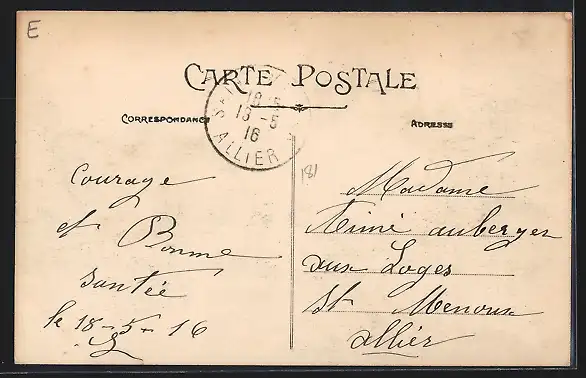 E
CARTE POSTALE
CORRESPONDANCE
ADRESSE
18
18-5
16
ALLIER
181
Courage
et Bonne
santée
le 18-5-16
Madame
auberger
aux Loges
St Menoux
allier